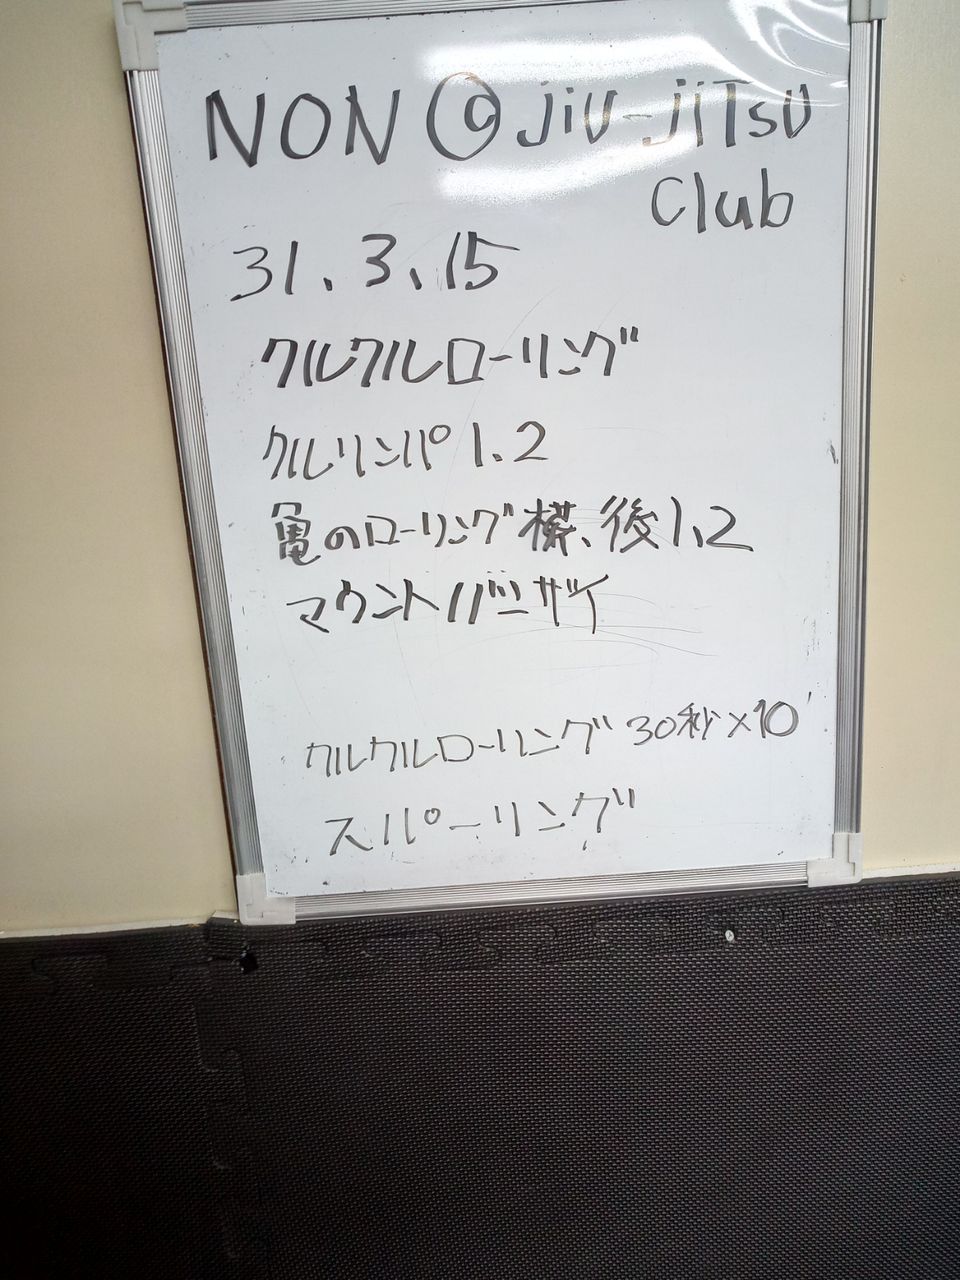 NON © jiU-jiTsU
Club
31、3、15
クルクルローリング
クルリンパ 1、2
亀のローリング 横、後 1、2
マウントバンザイ
クルクルローリング 30秒×10'
スパーリング